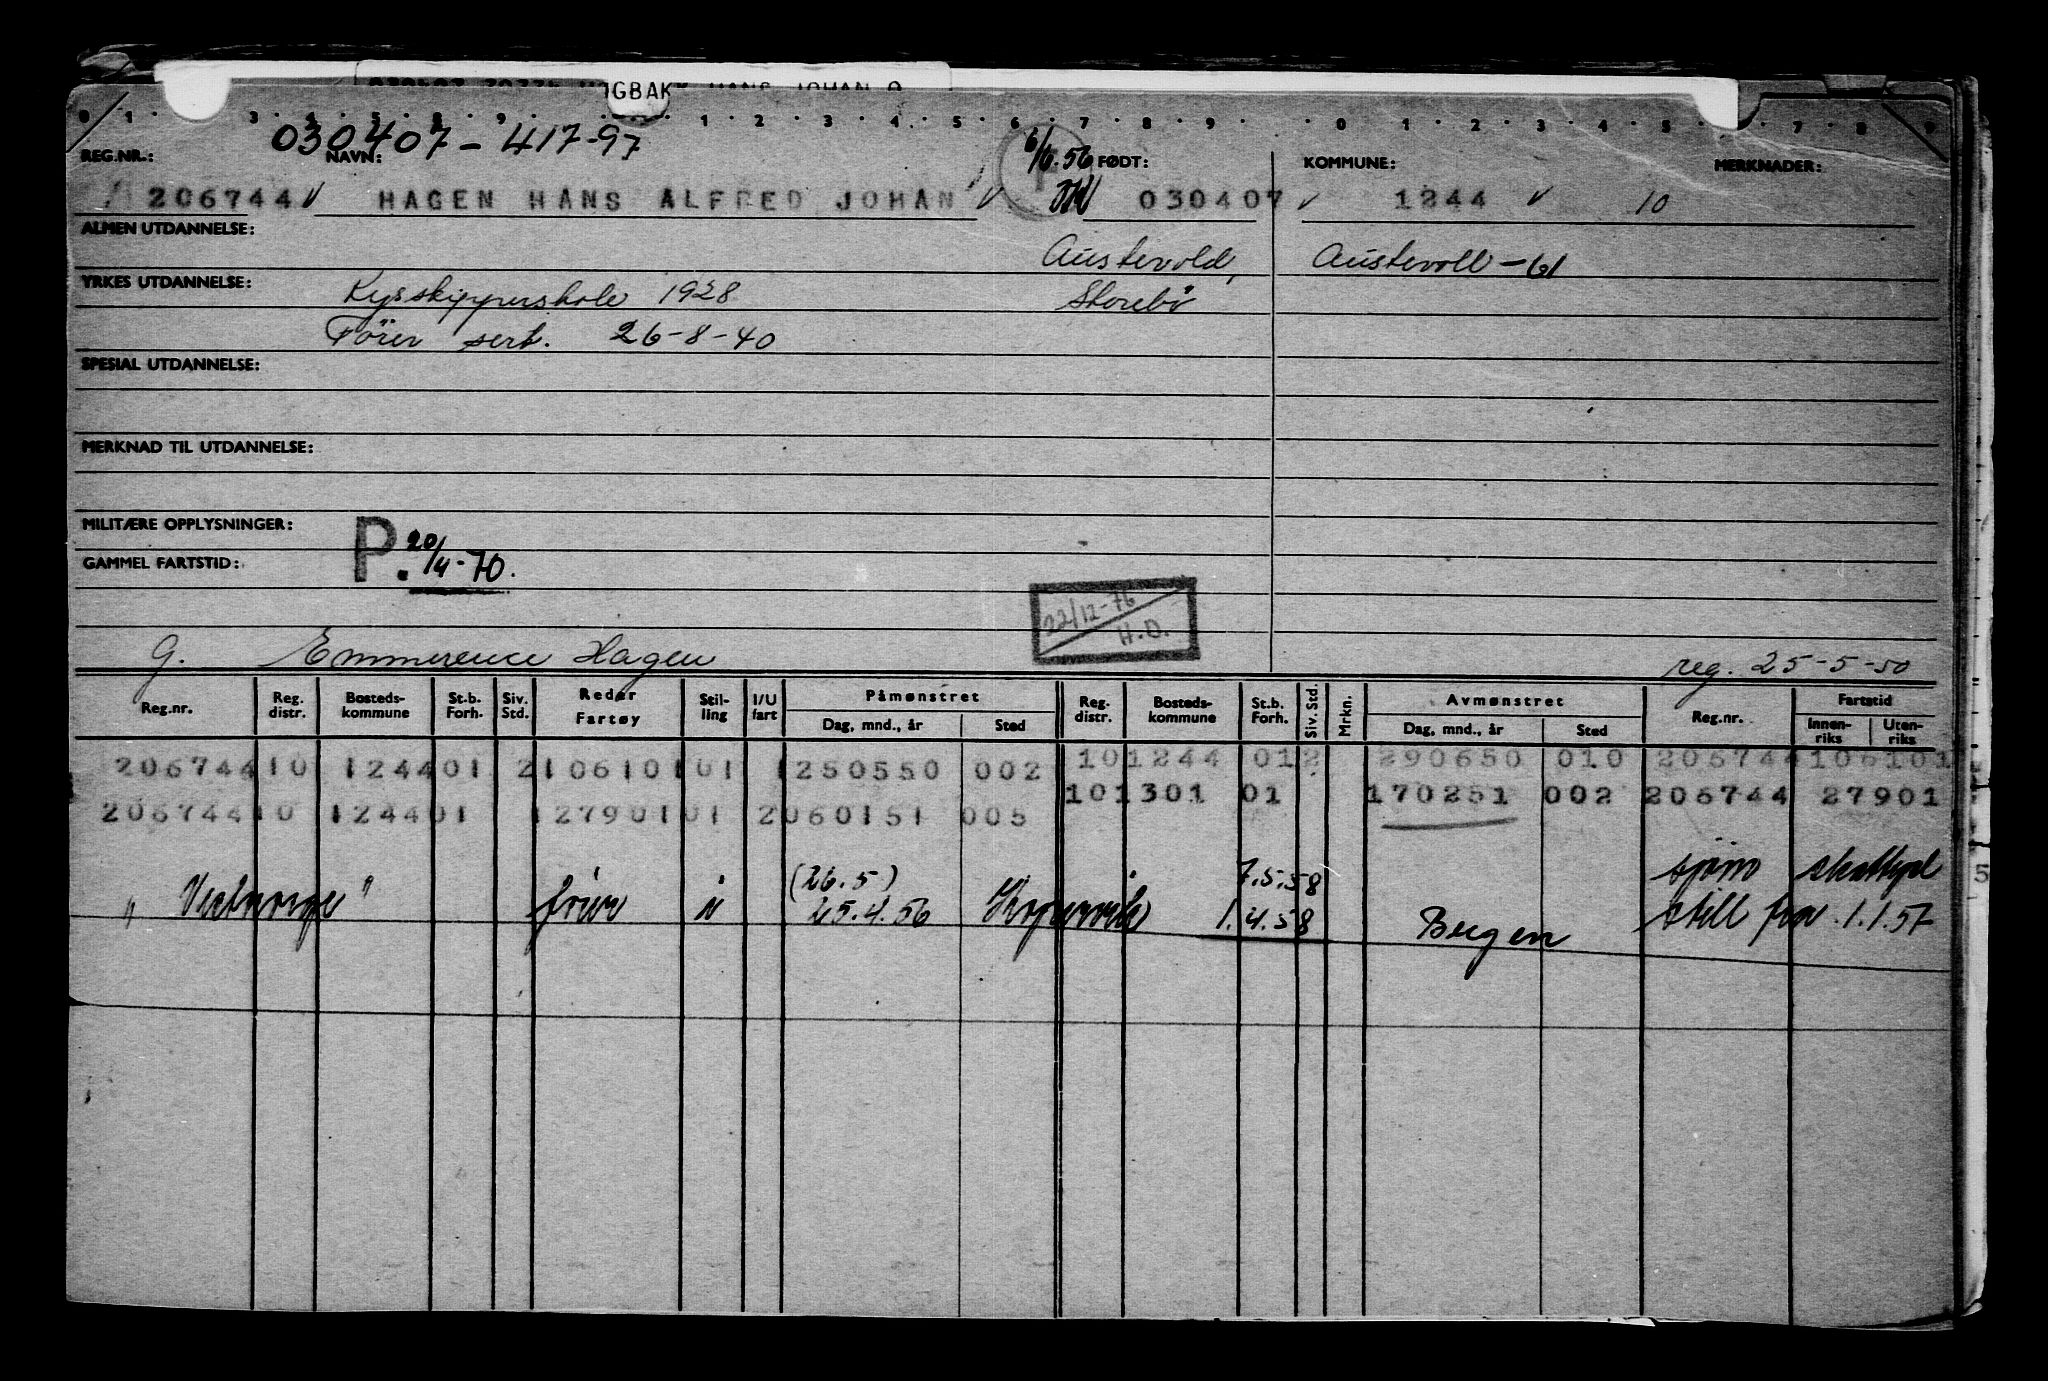 030407-417-97
REG.NR.: NAVN: 6/6.56 FØDT: KOMMUNE: MERKNADER:
206744 HAGEN HANS ALFRED JOHAN 030407 1244 10
ALMEN UTDANNELSE: Austevold, Austevoll-61
YRKES UTDANNELSE: Kysskipperskole 1928 Storebø
Fører sert. 26-8-40
SPESIAL UTDANNELSE:
MERKNAD TIL UTDANNELSE:
MILITÆRE OPPLYSNINGER:
GAMMEL FARTSTID: P. 20/4-70.
22/12-76
H.O.
G. Emmerence Hagen reg. 25-5-50
Reg.nr. Reg. distr. Bosteds-kommune St.b. Forh. Siv. Std. Reder Fartøy Stil-ling I/U fart Påmønstret Dag, mnd., år Sted Reg. distr. Bosteds-kommune St.b. Forh. Siv. Std. Mrkn. Avmønstret Dag, mnd., år Sted Reg.nr. Fartstid Innen-riks Uten-riks
206744 10 1244 01 2 10610 1 01 1 250550 002 10 1244 01 2 290650 010 206744 106101
206744 10 1244 01 12790 1 01 2 060151 005 10 1301 01 170251 002 206744 27901
(26.5) 7.5.58 sjøm skattepl
"Vestnorge" fører i 25.4.56 Kopervik 1.4.58 Bergen still fra 1.1.57